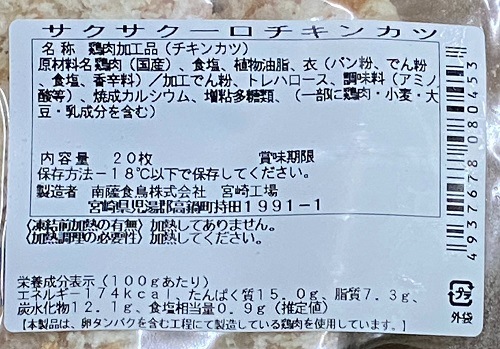 サクサク一口チキンカツ
名 称 鶏肉加工品（チキンカツ）
原材料名鶏肉（国産）、食塩、植物油脂、衣（パン粉、でん粉
、食塩、香辛料）／加工でん粉、トレハロース、調味料（アミノ
酸等）、焼成カルシウム、増粘多糖類、（一部に鶏肉・小麦・大
豆・乳成分を含む）
内容量 20枚 賞味期限
保存方法－18℃以下で保存してください。
製造者 南薩食鳥株式会社 宮崎工場
宮崎県児湯郡高鍋町持田1991－1
〈凍結前加熱の有無〉加熱してありません。
〈加熱調理の必要性〉加熱してください。
栄養成分表示（100gあたり）
エネルギー174kcal、たんぱく質15.0g、脂質7.3g、
炭水化物12.1g、食塩相当量0.9g（推定値）
【本製品は、卵タンパクを含む工程にて製造している鶏肉を使用しています。】
4937678080453
プラ
外袋